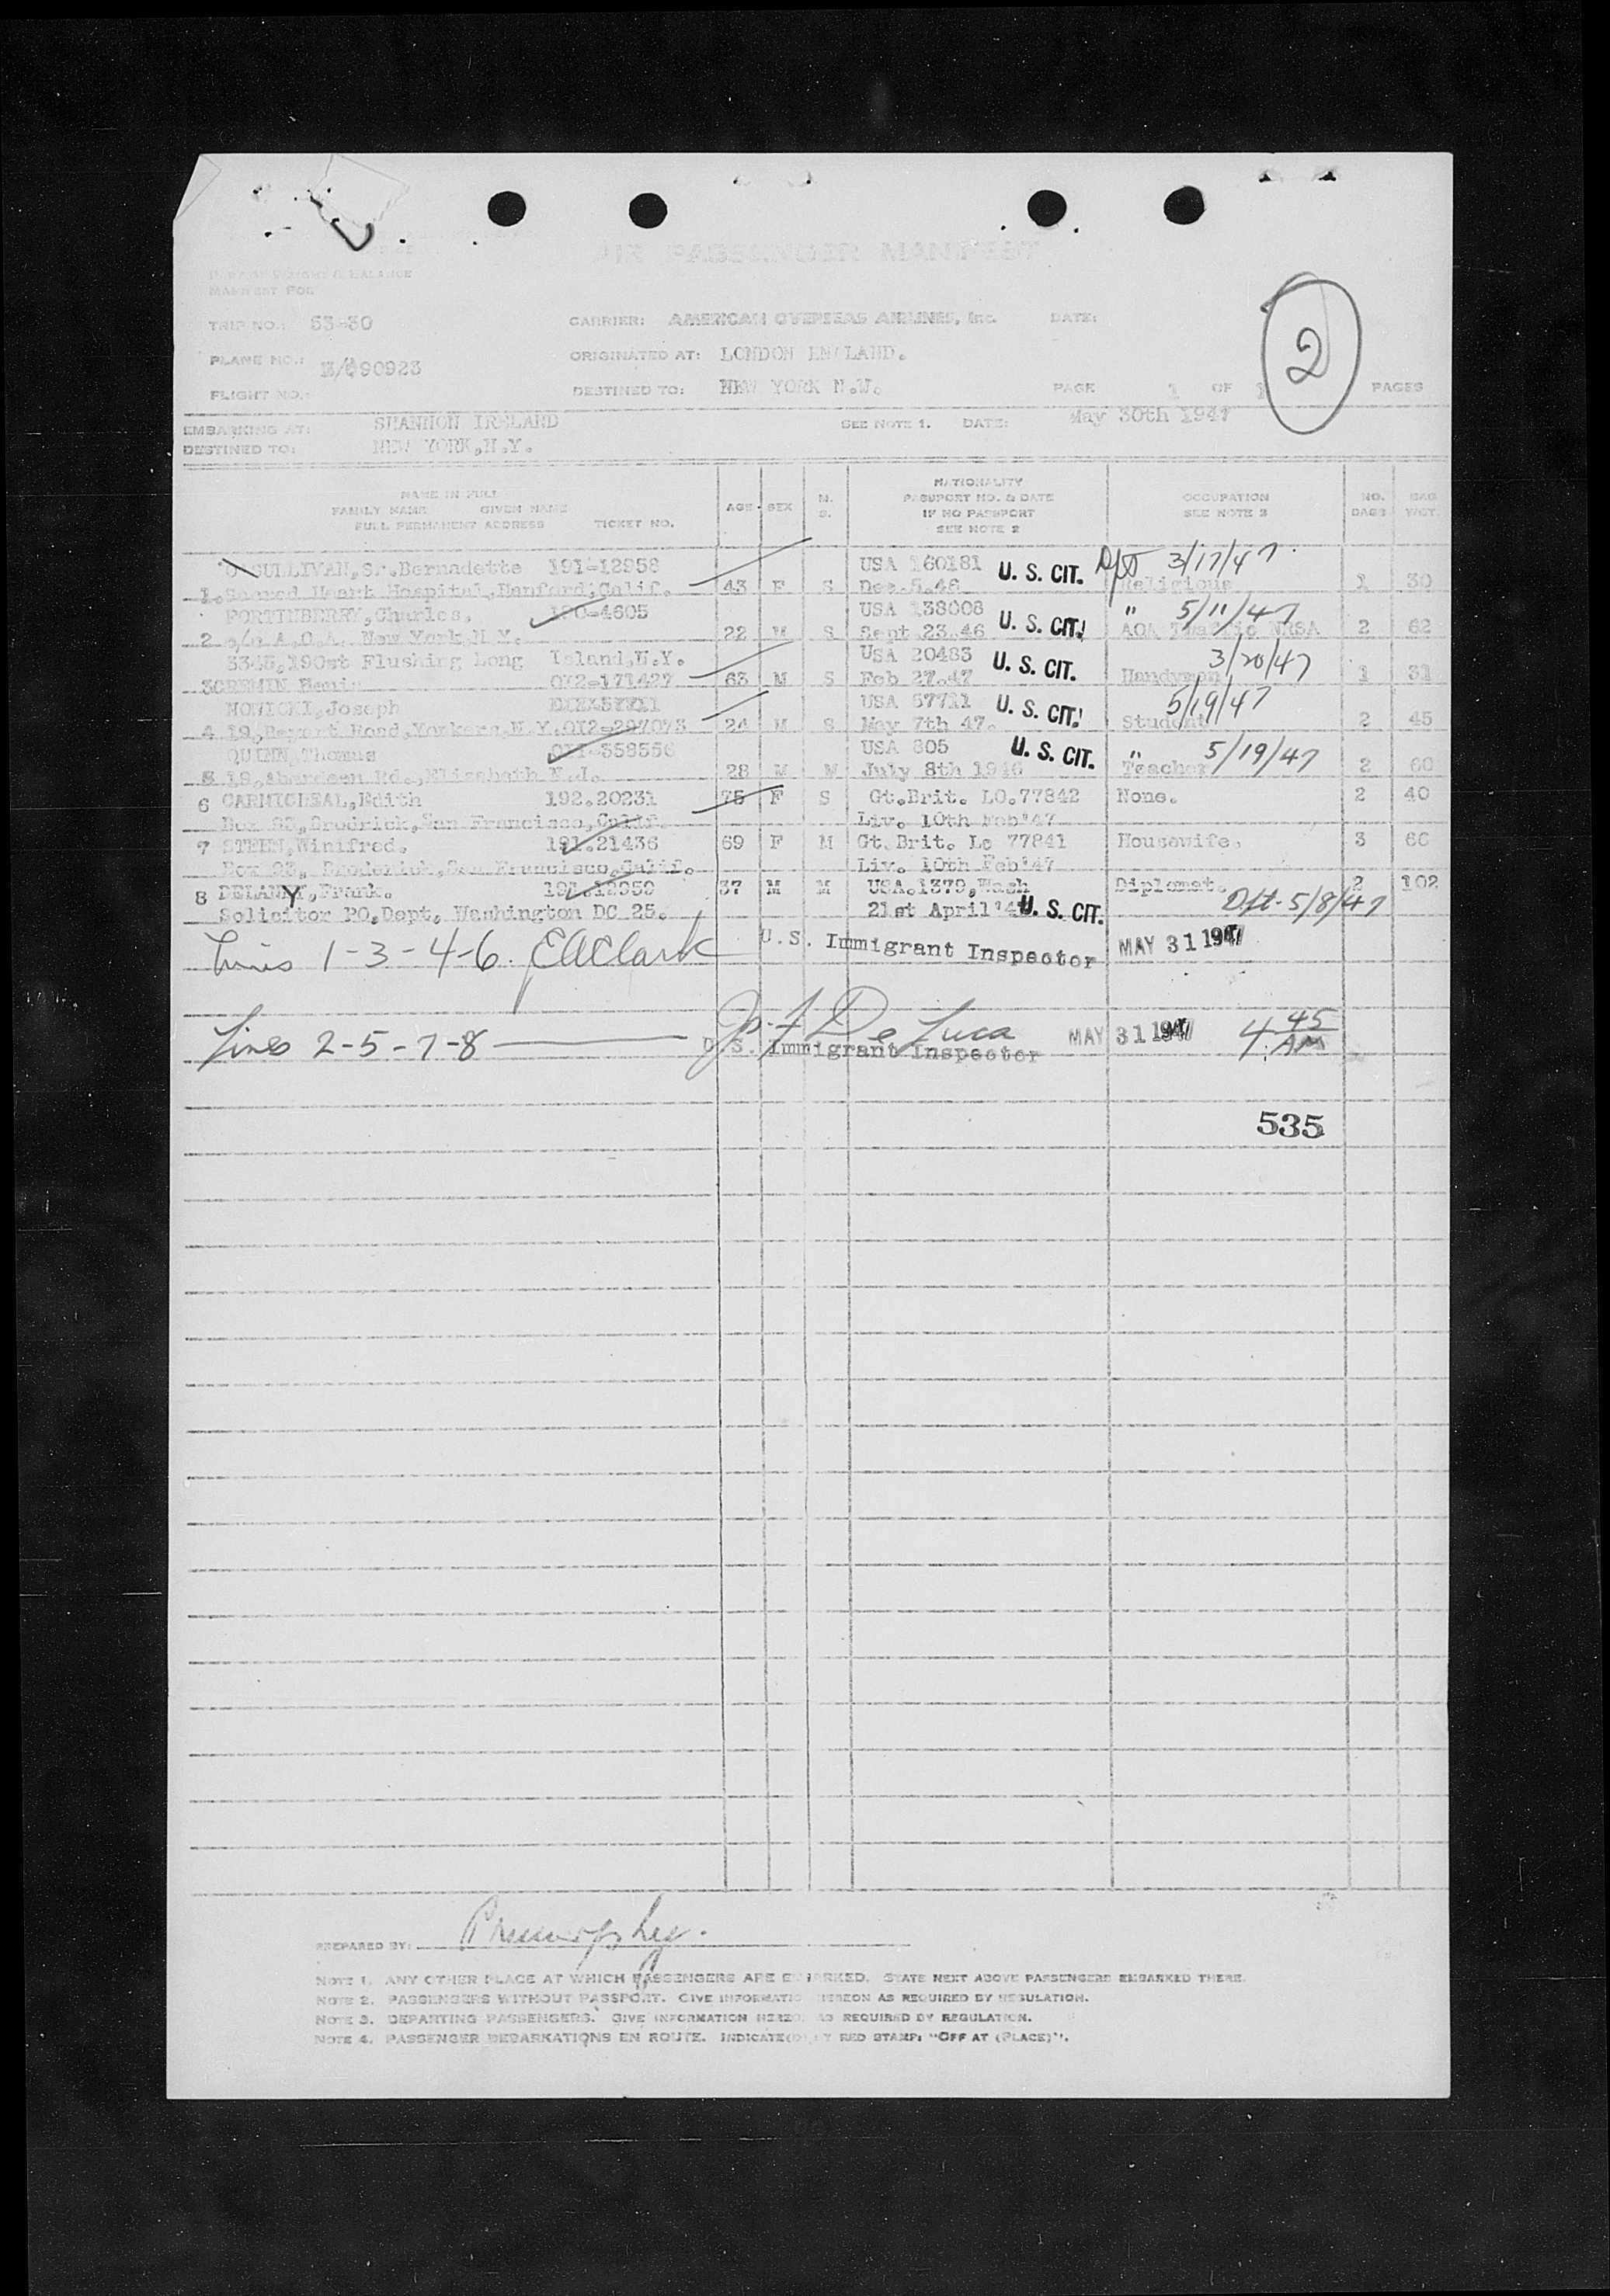 AIR PASSENGER MANIFEST
WEIGHT & BALANCE
MANIFEST FOR
TRIP NO.: 53-30 CARRIER: AMERICAN OVERSEAS AIRLINES, Inc. DATE:
PLANE NO.: 90923 ORIGINATED AT: LONDON ENGLAND.
FLIGHT NO.: DESTINED TO: NEW YORK N.Y. PAGE 1 OF 1 PAGES
2
EMBARKING AT: SHANNON IRELAND SEE NOTE 1. DATE: May 30th 1947
DESTINED TO: NEW YORK,N.Y.
NAME IN FULL
FAMILY NAME GIVEN NAME
FULL PERMANENT ADDRESS TICKET NO.
AGE SEX M. S.
NATIONALITY
PASSPORT NO. & DATE
IF NO PASSPORT
SEE NOTE 2
OCCUPATION
SEE NOTE 3
NO. BAGS BAG WGT.
O'SULLIVAN,Sr.Bernadette 191-12958 USA 160181 U. S. CIT. Dpt 3/17/47.
1.Sacred Heart Hospital,Hanford,Calif. 43 F S Dec.5.46 Religious 1 30
FORTINBERRY,Charles. 190-4605 USA 138008 U. S. CIT. " 5/11/47
2 c/o A.O.A. New York,N.Y. 22 M S Sept 23.46 AOA Traffic 2 62
3345,190st Flushing Long Island,N.Y. USA 20483 U. S. CIT. 3/20/47
3 012-171427 63 M S Feb 27.47 Handyman 1 31
NOWICKI,Joseph USA 57711 U. S. CIT. 5/19/47
4 19, Road,Yonkers,N.Y.012-297073 24 M S May 7th 47. Student 2 45
QUINN,Thomas 358556 USA 605 U. S. CIT. " 5/19/47
5 19,Aberdeen Rd.,Elizabeth N.J. 28 M July 8th 1946 Teacher 2 60
6 CARMICHEAL,Edith 192.20231 75 F S Gt.Brit. LO.77842 None. 2 40
Box 23,Brodrick,San Francisco,Calif. Liv. 10th Feb'47
7 STEEN,Winifred. 191.21436 69 F M Gt.Brit. Lo 77841 Housewife. 3 66
Box 23, Broderick,San Francisco,Calif. Liv. 10th Feb'47
8 DELANEY,Frank. 191.12959 37 M M USA.1379,Wash Diplomat. 2 102
Solicitor PO.Dept. Washington DC 25. 21st April U. S. CIT. Dpt. 5/8/47
Lines 1-3-4-6. EAClark U.S. Immigrant Inspector MAY 31 1947
Lines 2-5-7-8 J. F. De Luca U.S. Immigrant Inspector MAY 31 1947 4 45 AM
535
PREPARED BY:
NOTE 1. ANY OTHER PLACE AT WHICH PASSENGERS ARE EMBARKED. STATE NEXT ABOVE PASSENGERS EMBARKED THERE.
NOTE 2. PASSENGERS WITHOUT PASSPORT. GIVE INFORMATION HEREON AS REQUIRED BY REGULATION.
NOTE 3. DEPARTING PASSENGERS. GIVE INFORMATION HEREON AS REQUIRED BY REGULATION.
NOTE 4. PASSENGER DEBARKATIONS EN ROUTE. INDICATE BY RED STAMP: "OFF AT (PLACE)".